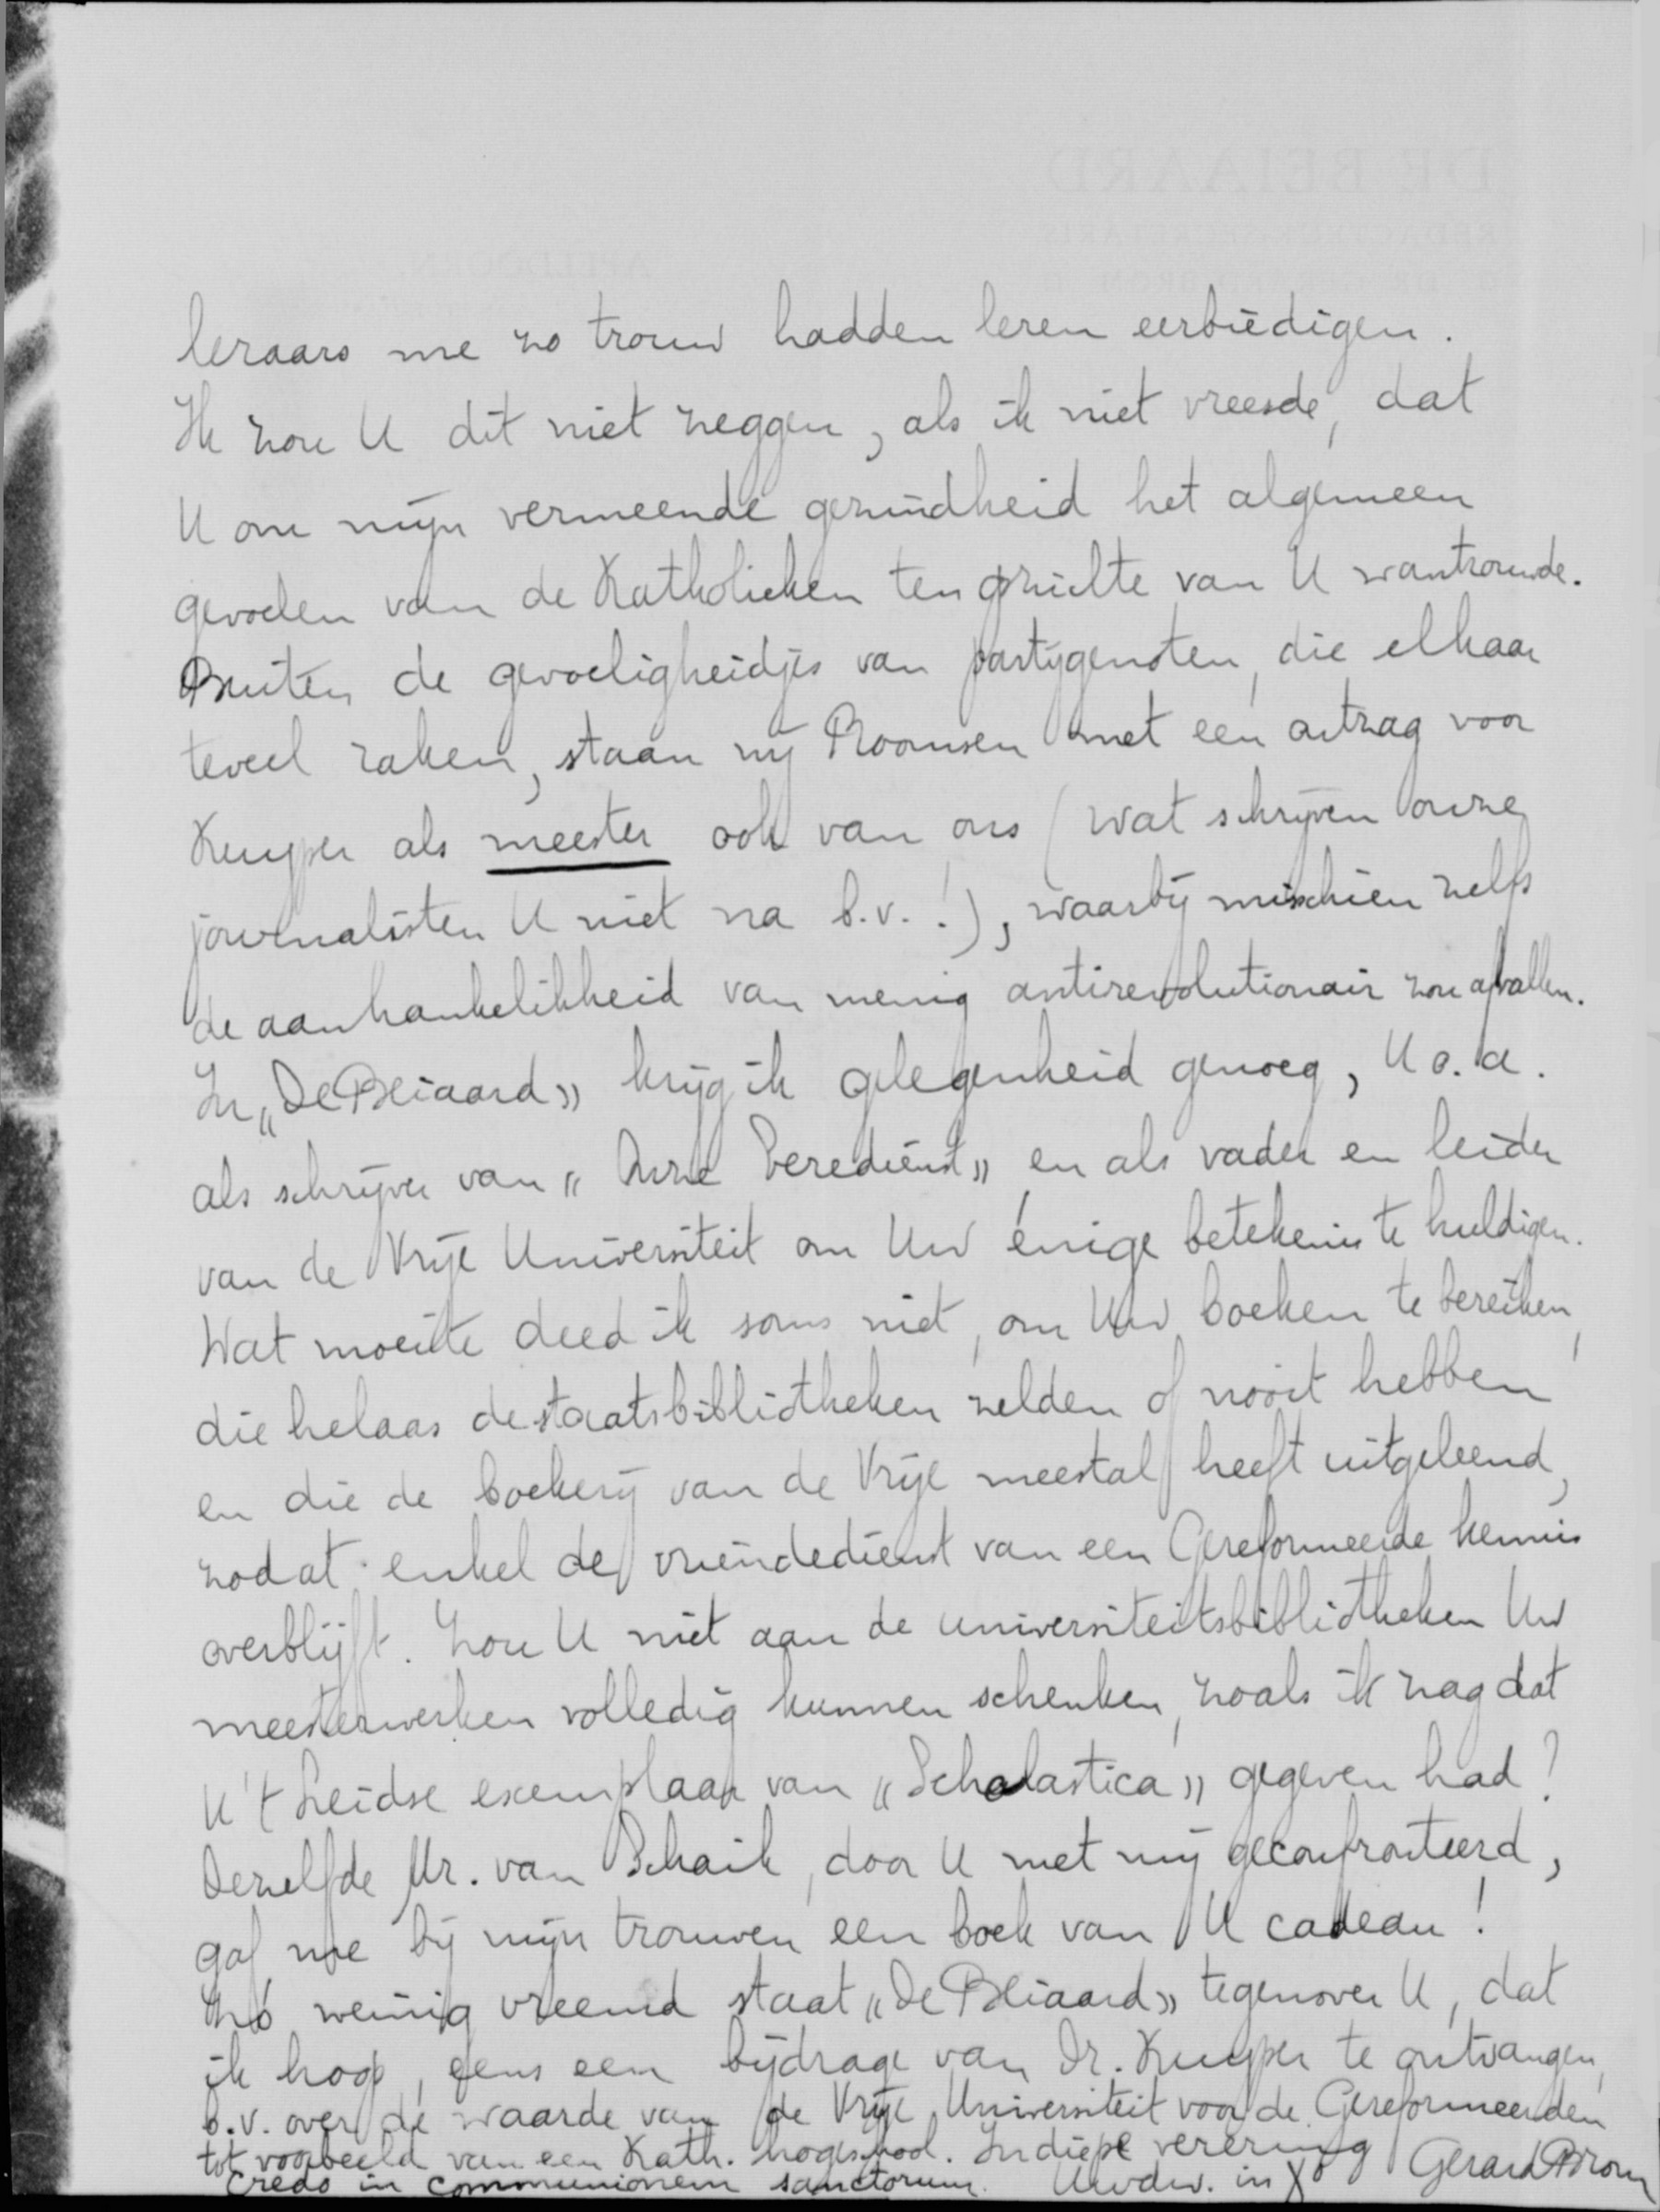 leraars me zo trouw hadden leren eerbiedigen.
Ik zou U dit niet zeggen, als ik niet vreesde, dat
U om mijn vermeende gezindheid het algemeen
gevoelen van de Katholieken ten opzichte van U wantrouwde.
Buiten de gevoeligheidjes van partijgenoten, die elkaar
teveel raken, staan wij Roomsen met een ontzag voor
Kuyper als meester ook van ons (wat schrijven onze
journalisten U niet na b.v.!), waarbij misschien zelfs
de aanhankelikheid van menig antirevolutionair zou afvallen.
In „De Beiaard” krijg ik gelegenheid genoeg, U o.a.
als schrijver van „Onze Eeredienst” en als vader en leider
van de Vrije Universiteit om Uw énige betekenis te huldigen.
Wat moeite deed ik soms niet, om Uw boeken te bereiken,
die helaas de staatsbibliotheken zelden of nooit hebben
en die de boekerij van de Vrije meestal heeft uitgeleend,
zodat enkel de vriendedienst van een Gereformeerde kennis
overblijft. Zou U niet aan de universiteitsbibliotheken Uw
meesterwerken volledig kunnen schenken, zoals ik zag dat
U 't Leidse exemplaar van „Scholastica” gegeven had?
Dezelfde Mr. van Schaik, door U met mij geconfronteerd,
gaf me bij mijn trouwen een boek van U cadeau!
Zó weinig vreemd staat „De Beiaard” tegenover U, dat
ik hoop, eens een bijdrage van Dr. Kuyper te ontvangen,
b.v. over de waarde van de Vrije Universiteit voor de Gereformeerden
tot voorbeeld van een Kath. hogeschool. In diepe verering
Credo in communionem sanctorum. Uwdw. in Xo Gerard Brom
DE BEIAARD